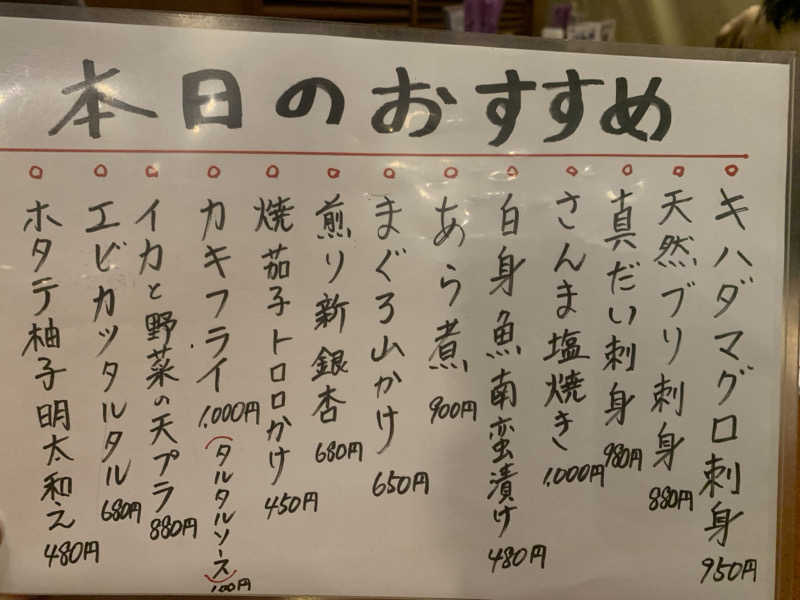 本日のおすすめ
キハダマグロ刺身 950円
天然ブリ刺身 880円
真だい刺身 980円
さんま塩焼き 1,000円
白身魚南蛮漬け 480円
あら煮 900円
まぐろ山かけ 650円
煎り新銀杏 680円
焼茄子トロロかけ 450円
カキフライ 1,000円
(タルタルソース) 100円
イカと野菜の天プラ 880円
エビカツタルタル 680円
ホタテ柚子明太和え 480円